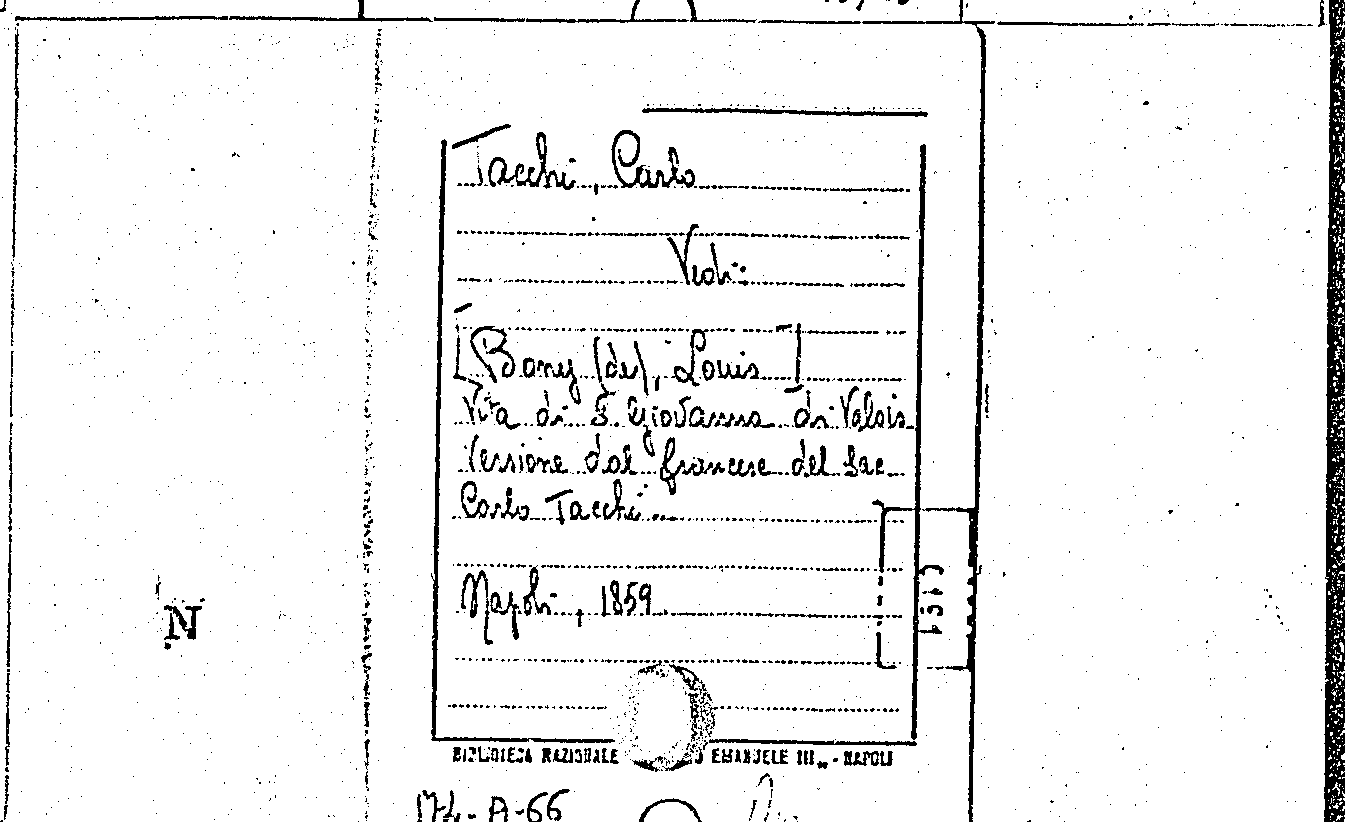 Tacchi, Carlo
Vedi:
[Bony (de), Louis]
Vita di S. Giovanna di Valois
Versione dal francese del Sac.
Carlo Tacchi...
Napoli, 1859.
N
BIBLIOTECA NAZIONALE EMANUELE III„ - NAPOLI
A-66